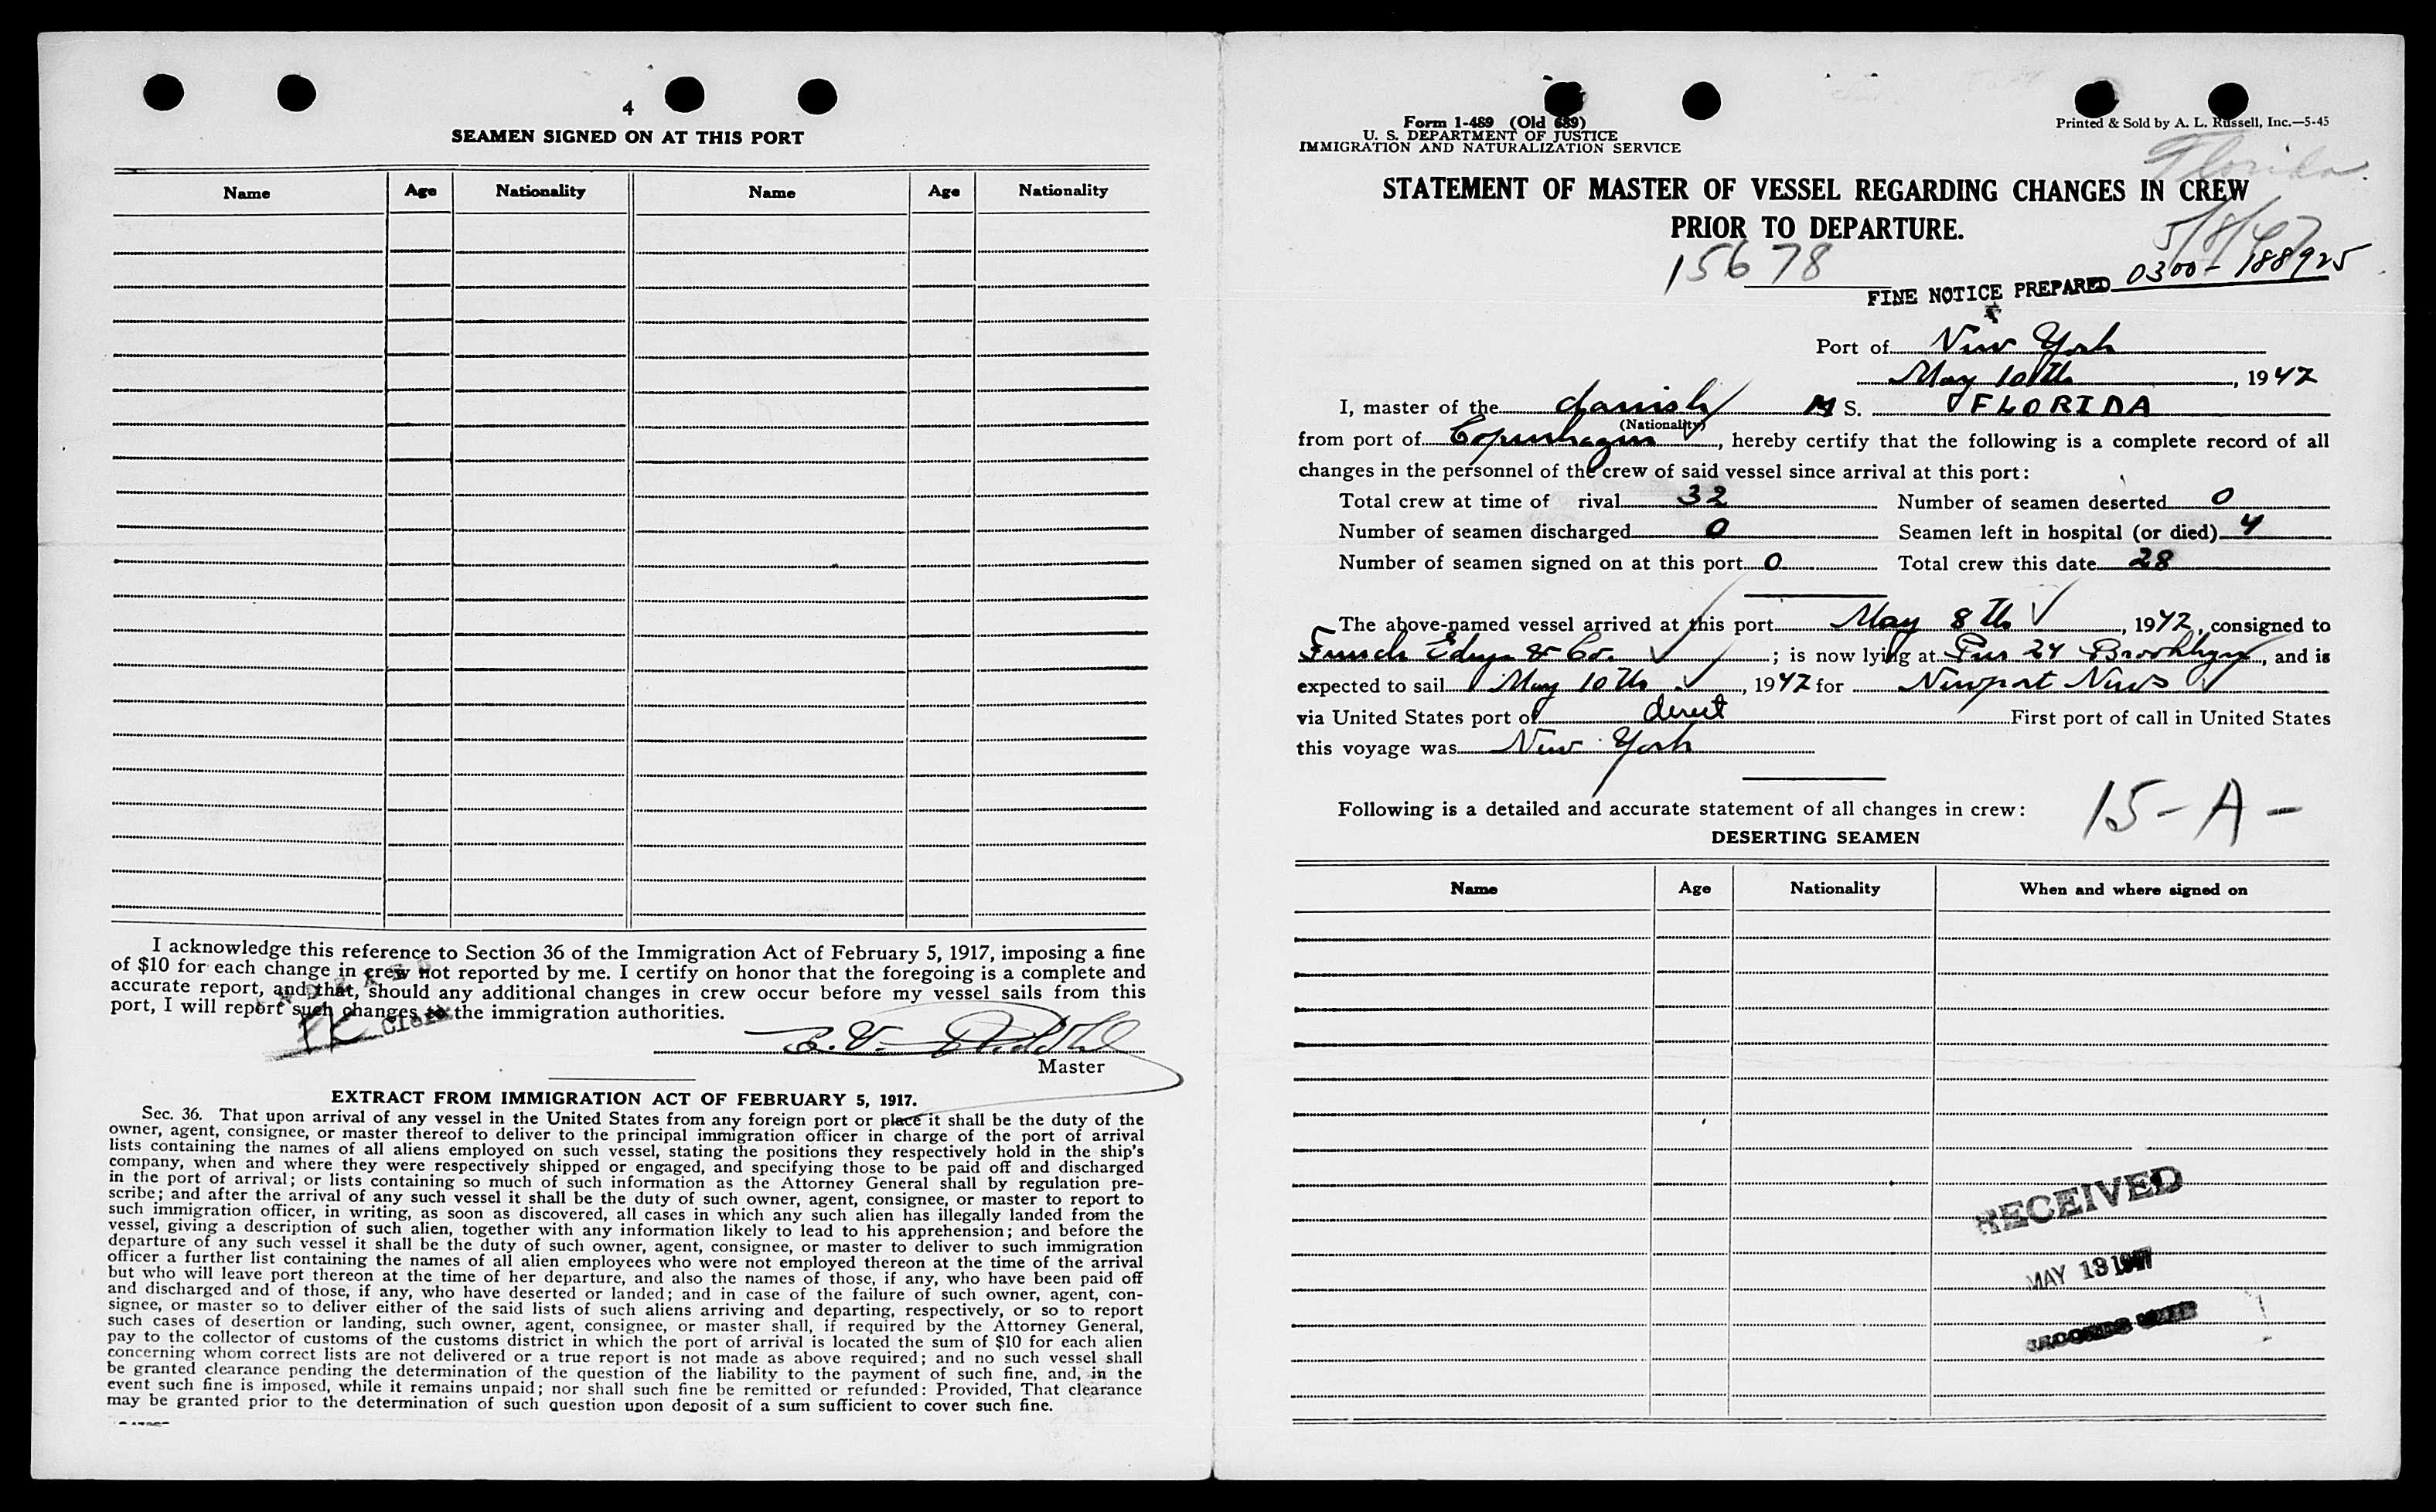 4
SEAMEN SIGNED ON AT THIS PORT
Name Age Nationality Name Age Nationality
I acknowledge this reference to Section 36 of the Immigration Act of February 5, 1917, imposing a fine
of $10 for each change in crew not reported by me. I certify on honor that the foregoing is a complete and
accurate report, and that, should any additional changes in crew occur before my vessel sails from this
port, I will report such changes to the immigration authorities.
Clerk
Master
EXTRACT FROM IMMIGRATION ACT OF FEBRUARY 5, 1917.
Sec. 36. That upon arrival of any vessel in the United States from any foreign port or place it shall be the duty of the
owner, agent, consignee, or master thereof to deliver to the principal immigration officer in charge of the port of arrival
lists containing the names of all aliens employed on such vessel, stating the positions they respectively hold in the ship's
company, when and where they were respectively shipped or engaged, and specifying those to be paid off and discharged
in the port of arrival; or lists containing so much of such information as the Attorney General shall by regulation pre-
scribe; and after the arrival of any such vessel it shall be the duty of such owner, agent, consignee, or master to report to
such immigration officer, in writing, as soon as discovered, all cases in which any such alien has illegally landed from the
vessel, giving a description of such alien, together with any information likely to lead to his apprehension; and before the
departure of any such vessel it shall be the duty of such owner, agent, consignee, or master to deliver to such immigration
officer a further list containing the names of all alien employees who were not employed thereon at the time of the arrival
but who will leave port thereon at the time of her departure, and also the names of those, if any, who have been paid off
and discharged and of those, if any, who have deserted or landed; and in case of the failure of such owner, agent, con-
signee, or master so to deliver either of the said lists of such aliens arriving and departing, respectively, or so to report
such cases of desertion or landing, such owner, agent, consignee, or master shall, if required by the Attorney General,
pay to the collector of customs of the customs district in which the port of arrival is located the sum of $10 for each alien
concerning whom correct lists are not delivered or a true report is not made as above required; and no such vessel shall
be granted clearance pending the determination of the question of the liability to the payment of such fine, and, in the
event such fine is imposed, while it remains unpaid; nor shall such fine be remitted or refunded: Provided, That clearance
may be granted prior to the determination of such question upon deposit of a sum sufficient to cover such fine.
Form 1-489 (Old 689)
U. S. DEPARTMENT OF JUSTICE
IMMIGRATION AND NATURALIZATION SERVICE
Printed & Sold by A. L. Russell, Inc.—5-45
Florida
STATEMENT OF MASTER OF VESSEL REGARDING CHANGES IN CREW
PRIOR TO DEPARTURE.
5/8/47
15678
FINE NOTICE PREPARED 0300-188925
Port of New York
May 10th, 1947
I, master of the danish M S. FLORIDA
(Nationality)
from port of Copenhagen, hereby certify that the following is a complete record of all
changes in the personnel of the crew of said vessel since arrival at this port:
Total crew at time of rival 32 Number of seamen deserted 0
Number of seamen discharged 0 Seamen left in hospital (or died) 4
Number of seamen signed on at this port 0 Total crew this date 28
The above-named vessel arrived at this port May 8th, 1947, consigned to
Funch Edye & Co.; is now lying at Pier 24 Brooklyn, and is
expected to sail May 10th, 1947 for Newport News
via United States port of direct First port of call in United States
this voyage was New York
Following is a detailed and accurate statement of all changes in crew:
15-A-
DESERTING SEAMEN
Name Age Nationality When and where signed on
RECEIVED
MAY 13 1947